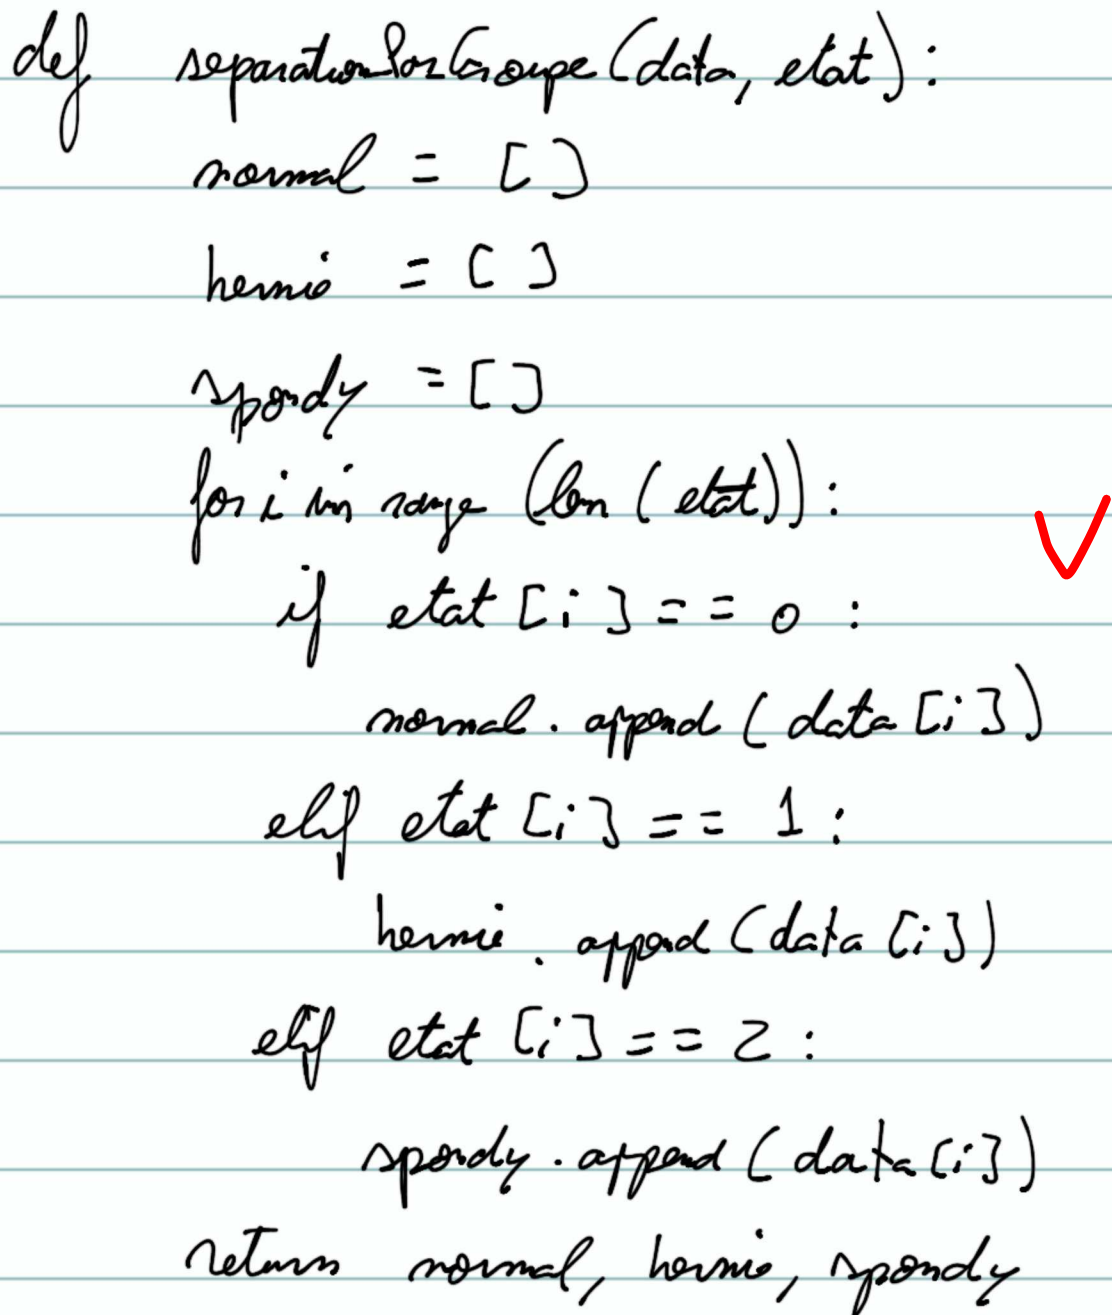 def separationParGroupe(data, etat):
normal = []
hernie = []
spondy = []
for i in range (len (etat)):
if etat [i] == 0 :
normal. append (data [i])
elif etat [i] == 1 :
hernie. append (data [i])
elif etat [i] == 2 :
spondy. append (data [i])
return normal, hernie, spondy